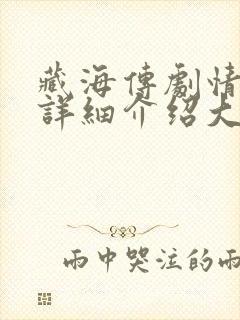 藏海傳劇情
詳細介紹大
雨中哭泣的雨